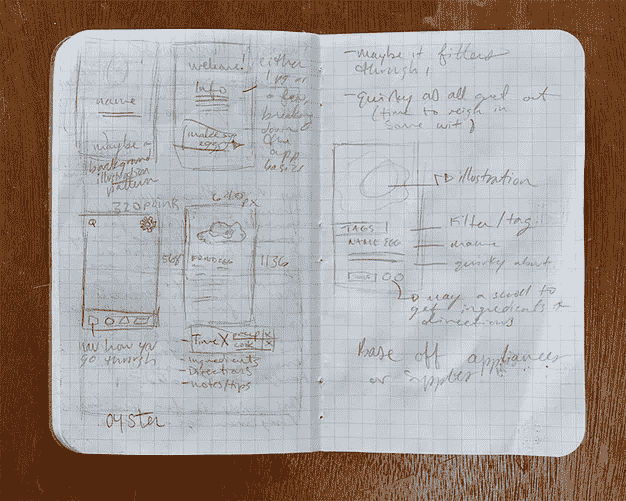 name
maybe a
background
illustration
pattern
welcome!
Info
make an
egg!
either
1 pg or
a few,
breaking
down
the
app
basics
320 points
640
px
568
1136
FRIED EGG
how you
go through
Time
prep
cook
- ingredients
- Directions
- notes/tips
oyster
- maybe it filters
through!
- quirky as all get out
(time to reign in
some wit)
illustration
TAGS
NAME EGG
filter/tag
name
quirky about
a scroll to
get ingredients +
directions
Base off appliances
or